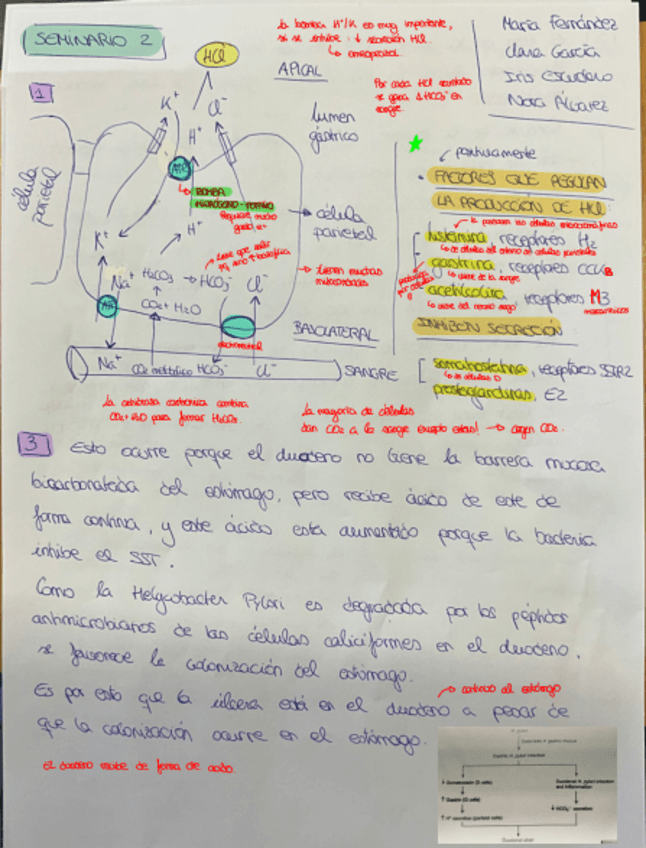 SEMINARIO 2
HCl
La bomba H⁺/K es muy importante,
si se inhibe ↓ secreción HCl.
↳ omeprazol.
María Fernández
Clara García
Iris Escudero
Nora Álvarez
APICAL
Por cada HCl secretado
se genera 1 HCO₃⁻ en
sangre.
1
K⁺
Cl⁻
H⁺
lumen
gástrico
célula
parietal
ATP
BOMBA
HIDRÓGENO-POTASIO
Requiere mucho
célula
parietal
K⁺
H⁺
↳ tienen muchas
mitocondrias
Na⁺
H₂CO₃ → HCO₃⁻
Cl⁻
CO₂ + H₂O
BASOLATERAL
Na⁺
CO₂ metabólico
HCO₃⁻
Cl⁻
SANGRE
positivamente
· FACTORES QUE REGULAN
LA PRODUCCIÓN DE HCl:
histamina, receptores H₂
gastrina, receptores CCKB
↳ viene de la sangre
acetilcolina, receptores M3
↳ viene del nervio vago
muscarínicos
INHIBEN SECRECIÓN
somatostatina, receptores SSTR2
↳ de células D
prostaglandinas, E2
La anhidrasa carbónica combina
CO₂ + H₂O para formar H₂CO₃.
La mayoría de células
dan CO₂ a la sangre excepto estas! → cogen CO₂.
3
Esto ocurre porque el duodeno no tiene la barrera mucosa
bicarbonatada del estómago, pero recibe ácido de este de
forma continua, y este ácido está aumentado porque la bacteria
inhibe el SST.
Como la Helycobacter Pylori es degradada por los péptidos
antimicrobianos de las células caliciformes en el duodeno,
se favorece la colonización del estómago.
→ contiguo al estómago
Es por esto que la úlcera está en el duodeno a pesar de
que la colonización ocurre en el estómago.
El duodeno recibe de forma de ácido.
↓ Somatostatin (D cells)
↑ Gastrin (G cells)
↑ H⁺ secretion (parietal cells)
Duodenal H. pylori infection
and inflammation
↓ HCO₃⁻ secretion
Duodenal ulcer